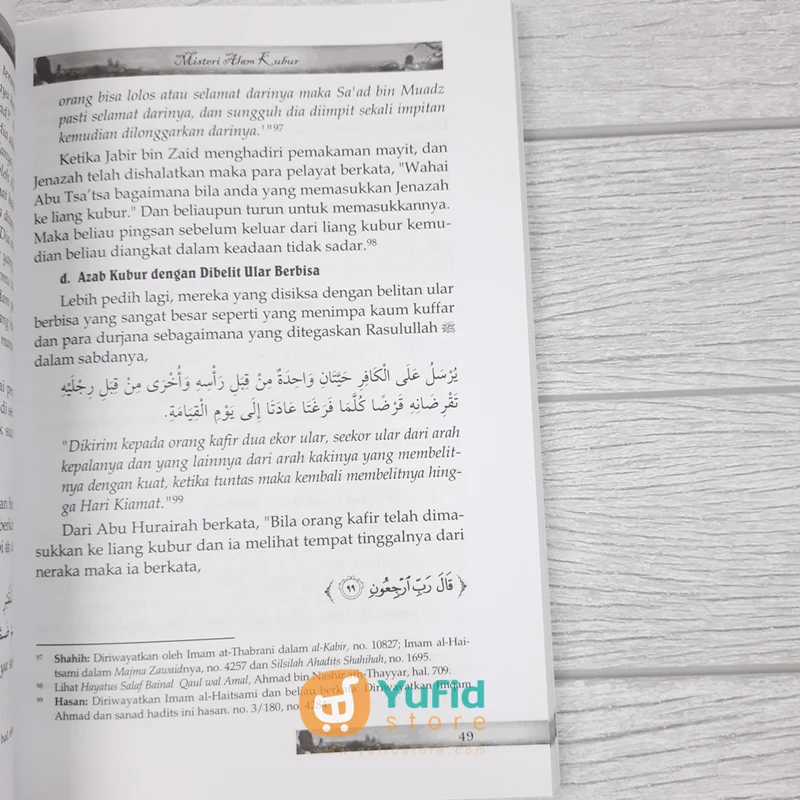 Misteri Alam Kubur
orang bisa lolos atau selamat darinya maka Sa'ad bin Muadz
pasti selamat darinya, dan sungguh dia diimpit sekali impitan
kemudian dilonggarkan darinya.'"97
Ketika Jabir bin Zaid menghadiri pemakaman mayit, dan
Jenazah telah dishalatkan maka para pelayat berkata, "Wahai
Abu Tsa'tsa bagaimana bila anda yang memasukkan Jenazah
ke liang kubur." Dan beliaupun turun untuk memasukkannya.
Maka beliau pingsan sebelum keluar dari liang kubur kemu-
dian beliau diangkat dalam keadaan tidak sadar.98
d. Azab Kubur dengan Dibelit Ular Berbisa
Lebih pedih lagi, mereka yang disiksa dengan belitan ular
berbisa yang sangat besar seperti yang menimpa kaum kuffar
dan para durjana sebagaimana yang ditegaskan Rasulullah ﷺ
dalam sabdanya,
يُرْسَلُ عَلَى الْكَافِرِ حَيَّتَانِ وَاحِدَةٌ مِنْ قِبَلِ رَأْسِهِ وَأُخْرَى مِنْ قِبَلِ رِجْلَيْهِ
تَقْرِضَانِهِ قَرْضًا كُلَّمَا فَرَغَتَا عَادَتَا إِلَى يَوْمِ الْقِيَامَةِ.
"Dikirim kepada orang kafir dua ekor ular, seekor ular dari arah
kepalanya dan yang lainnya dari arah kakinya yang membelit-
nya dengan kuat, ketika tuntas maka kembali membelitnya hing-
ga Hari Kiamat."99
Dari Abu Hurairah berkata, "Bila orang kafir telah dima-
sukkan ke liang kubur dan ia melihat tempat tinggalnya dari
neraka maka ia berkata,
﴿ قَالَ رَبِّ ٱرْجِعُونِ ٩٩ ﴾
97 Shahih: Diriwayatkan oleh Imam at-Thabrani dalam al-Kabir, no. 10827; Imam al-Hai-
tsami dalam Majma Zawaidnya, no. 4257 dan Silsilah Ahadits Shahihah, no. 1695.
98 Lihat Hayatus Salaf Bainal Qaul wal Amal, Ahmad bin Nashir ath-Thayyar, hal. 709.
99 Hasan: Diriwayatkan Imam al-Haitsami dan beliau berkata: Diriwayatkan Imam
Ahmad dan sanad hadits ini hasan. no. 3/180, no. 4284.
49
Yufid
store
www.yufidstore.com